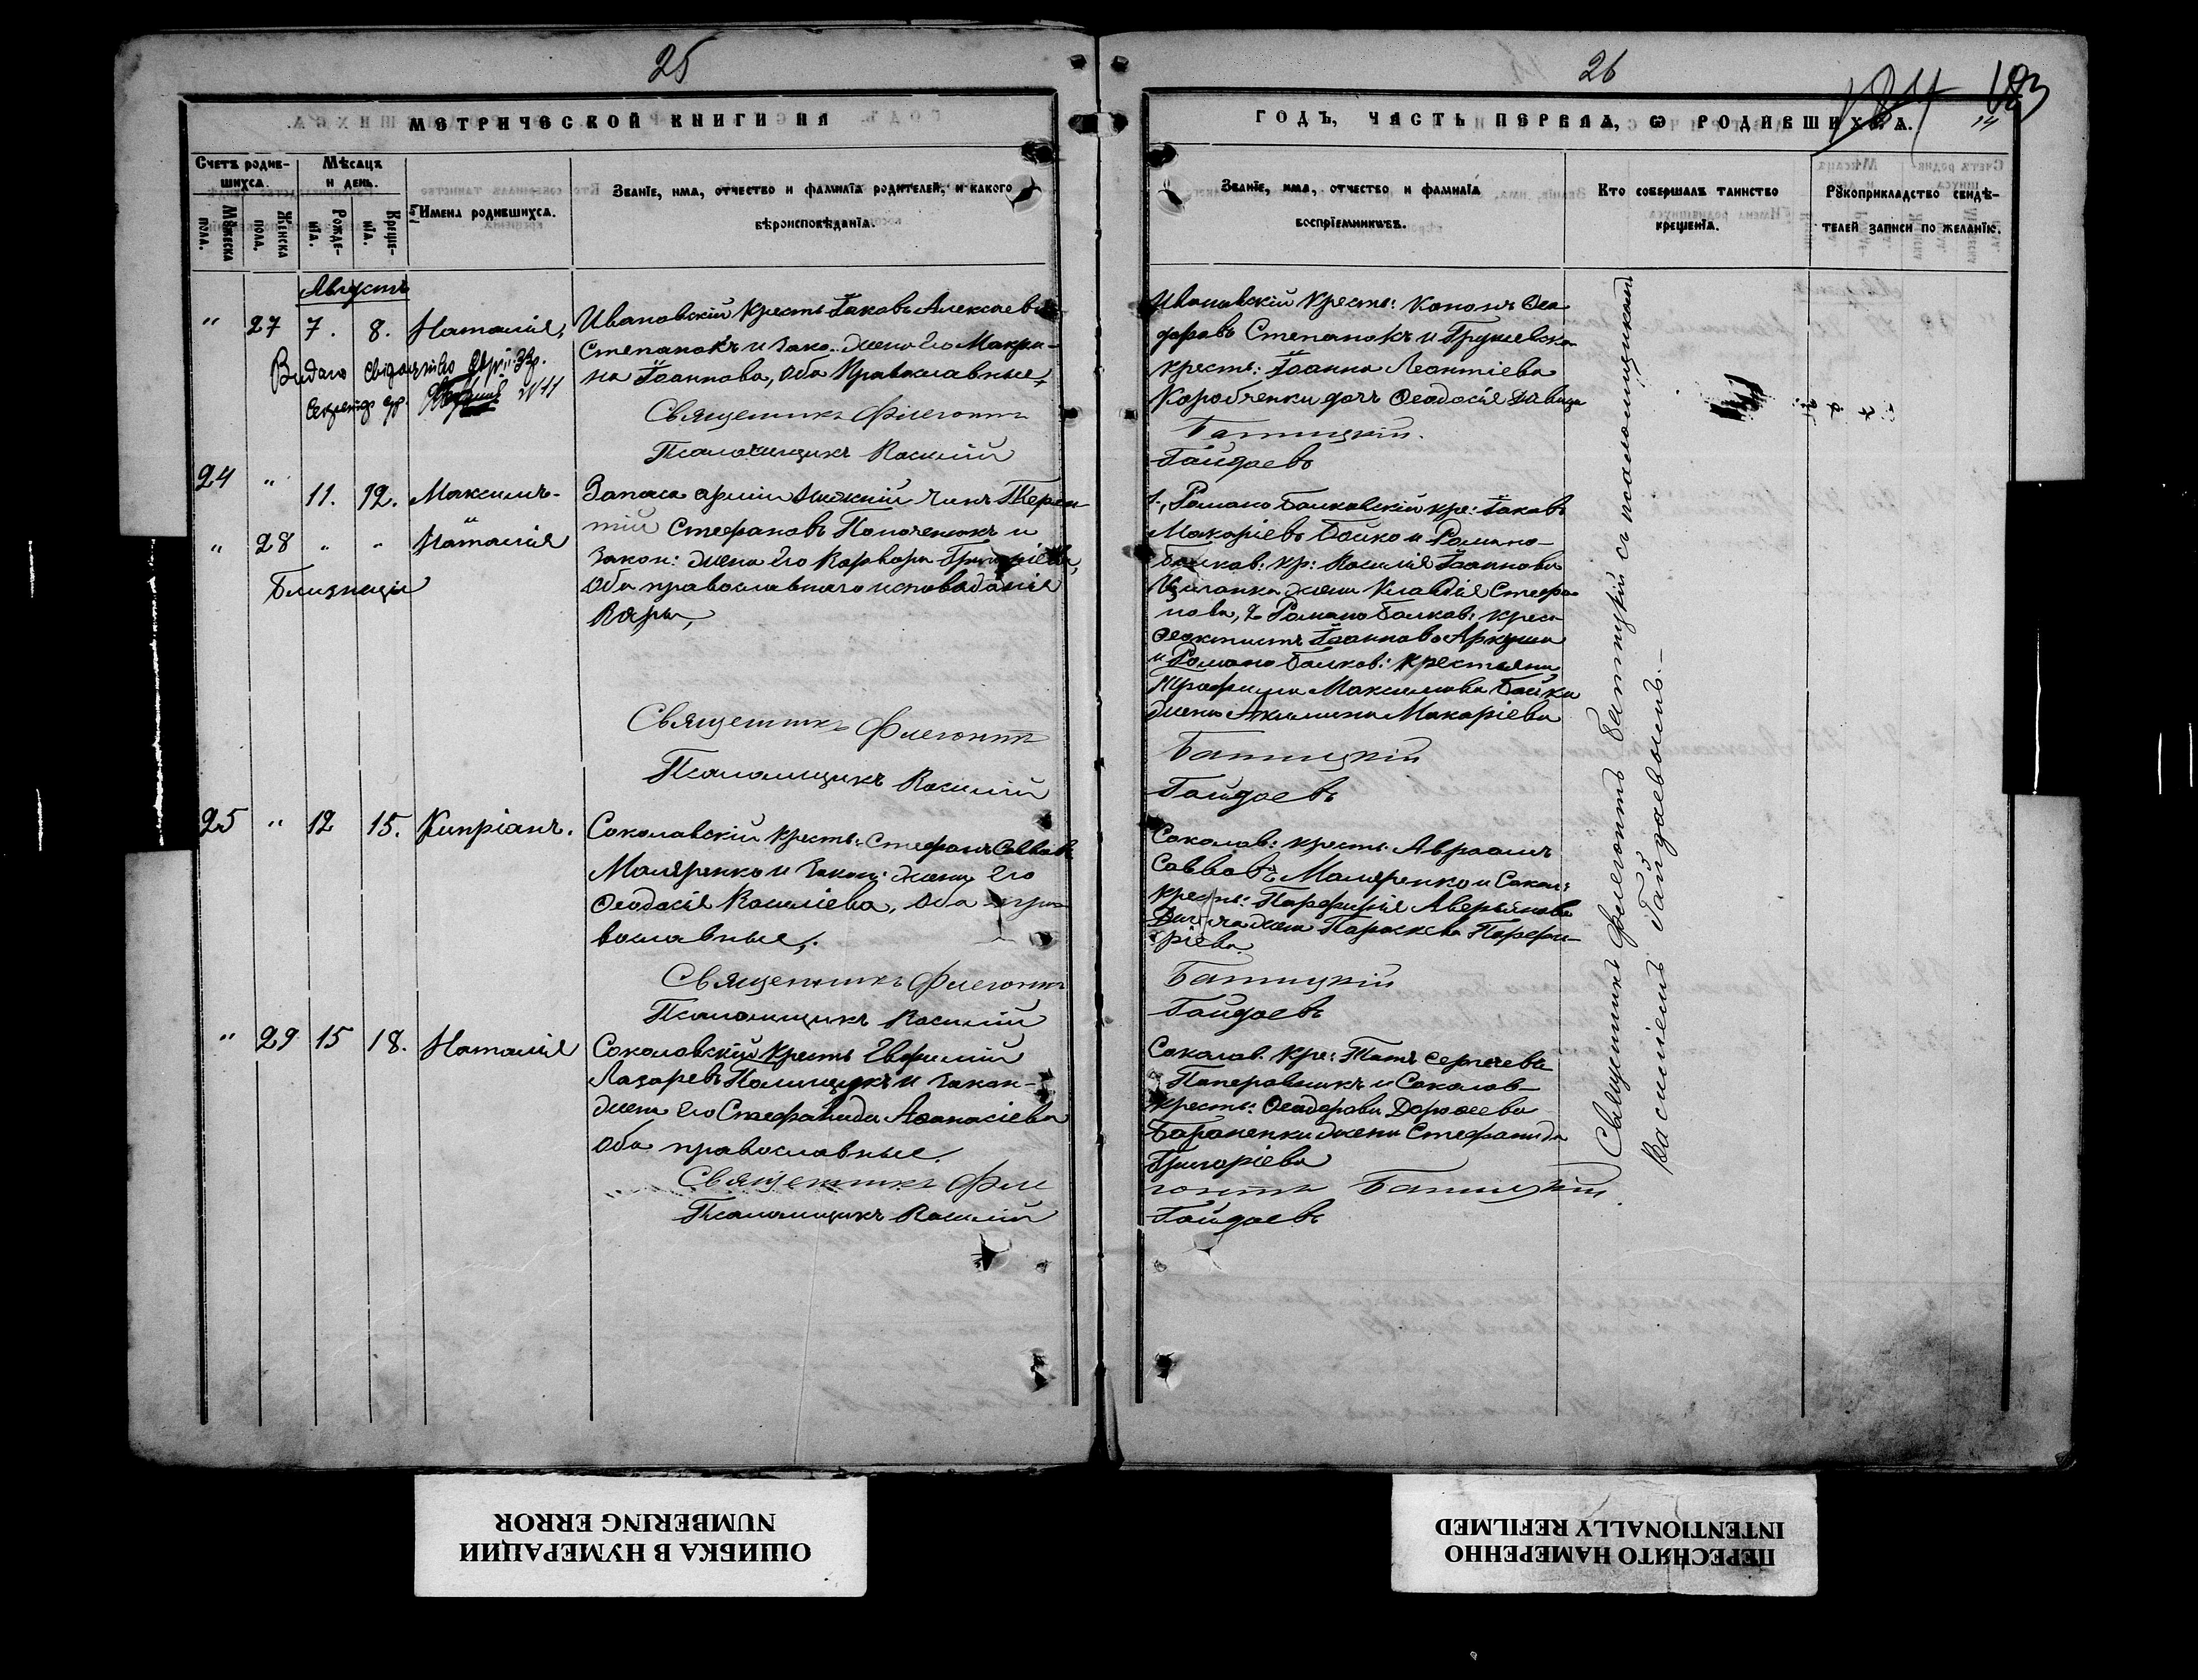 25
МЕТРИЧЕСКОЙ КНИГИ НА
Счетъ родив-
шихся.
Мѣсяцъ
и день.
Мужеска
пола.
Женска
пола.
Рожде-
нія.
Креще-
нія.
Имена родившихся.
Званіе, имя, отчество и фамилія родителей, и какого
вѣроисповѣданія.
Августъ
" 27 7. 8. Наталія,
Ивановскій крест. Іаковъ Алексаевъ
Степанокъ и зако. жена его Макри-
на Іоаннова, оба православные,
Видано
№ 11
Священникъ Флегонтъ
Псаломщикъ Василій
24 " 11. 12. Максимъ.
" 28 " " Наталія
Близнеци
Запаса арміи нижній чинъ Терен-
тій Стефановъ Полоченокъ и
закон: жена его Варвара Григоріева,
оба православнаго исповѣданія
Вѣры,
Священникъ Флегонтъ
Псаломщикъ Василій
25 " 12 15. Кипріанъ.
Соколовскій крест: Стефанъ Саввовъ
Маляренко и закон: жена его
Ѳеодосія Василіева, оба пра-
вославные,
Священникъ Флегонтъ
Псаломщикъ Василій
" 29 15 18. Наталія
Соколовскій крест. Евфимій
Лазаревъ Полищукъ и закон-
жена его Стефанида Аѳанасіева
оба православные.
Священникъ Фле
Псаломщикъ Василій
26
184 183
14
ГОДЪ, ЧАСТЬ ПЕРВАЯ, Ѡ РОДИВШИХСЯ.
Званіе, имя, отчество и фамилія
воспріемниковъ.
Кто совершалъ таинство
крещенія.
Рукоприкладство свидѣ-
телей записи по желанію.
Ивановскій крест: Кононъ Ѳео-
доровъ Степанокъ и Грушевско-
крест: Іоанна Леонтіева
Коробченки доч Ѳеодосія
Батицкій.
Гайдаевъ
1, Романо Балковскій кре: Іаковъ
Макаріевъ Бойко и Романо-
балков: кр: Василія Іоаннова
Циганка жена Клавдія Стефа-
нова, 2 Романо Балков: крес
Ѳеоктистъ Іоанновъ Аркуша
и Романо Балков: крестьяни
Трофима Максимова Бойка
жена Акилина Макаріева
Батицкій
Гайдаевъ
Соколов: крест: Авраамъ
Саввовъ Маляренко и Сокол:
крест: Парфирія Аверьянова
жена Параскева Порфи-
ріева
Батицкій
Гайдаевъ
Соколов. кре: Титъ Сергеевъ
Паперовникъ и Соколов-
крест: Ѳеодорова Дороѳеева
Бараненки жена Стефанида
Григоріева
гонтъ Батицкій
Гайдаевъ
Священникъ Флегонтъ Батицкій съ псаломщикомъ
Василіемъ Гайдаевымъ.
ОШИБКА В НУМЕРАЦИИ
NUMBERING ERROR
ПЕРЕСНЯТО НАМЕРЕННО
INTENTIONALLY REFILMED